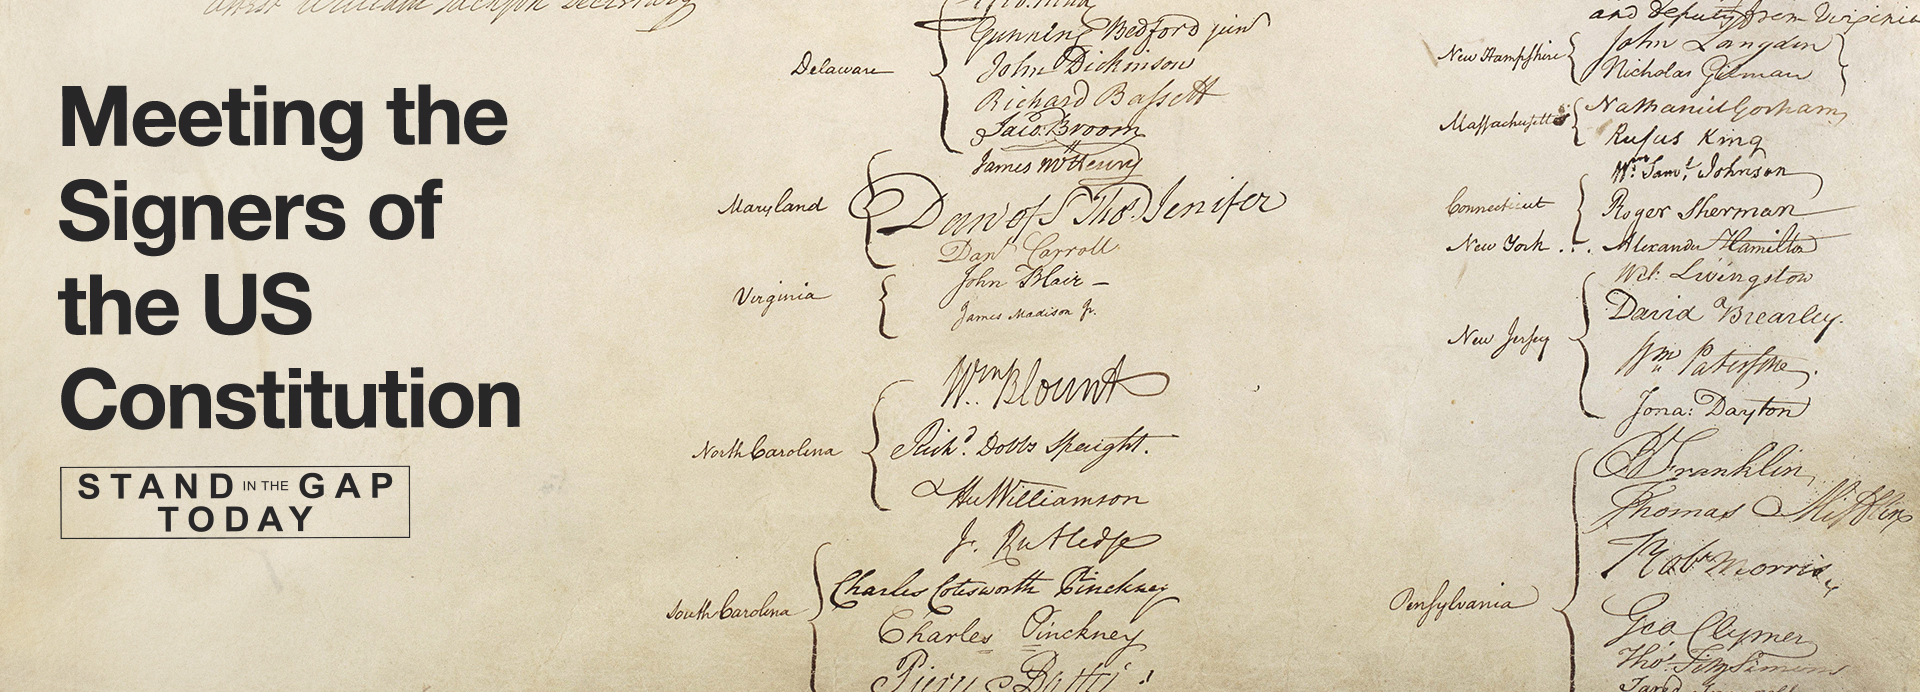 Meeting the
Signers of
the US
Constitution
STAND IN THE GAP
TODAY
attest William Jackson Secretary
Delaware
Gunning Bedford jun
John Dickinson
Richard Bassett
Jaco: Broom
Maryland
James McHenry
Dan of St Thos. Jenifer
Danl Carroll
Virginia
John Blair —
James Madison Jr.
North Carolina
Wm. Blount
Richd. Dobbs Spaight.
Hu Williamson
South Carolina
J. Rutledge
Charles Cotesworth Pinckney
Charles Pinckney
Pierce Butler
and deputy from Virginia
New Hampshire
John Langdon
Nicholas Gilman
Massachusetts
Nathaniel Gorham
Rufus King
Connecticut
Wm. Saml. Johnson
Roger Sherman
New York . . .
Alexander Hamilton
New Jersey
Wil: Livingston
David Brearley.
Wm Paterson.
Jona: Dayton
Pensylvania
B Franklin
Thomas Mifflin
Robt Morris
Geo. Clymer
Thos. FitzSimons